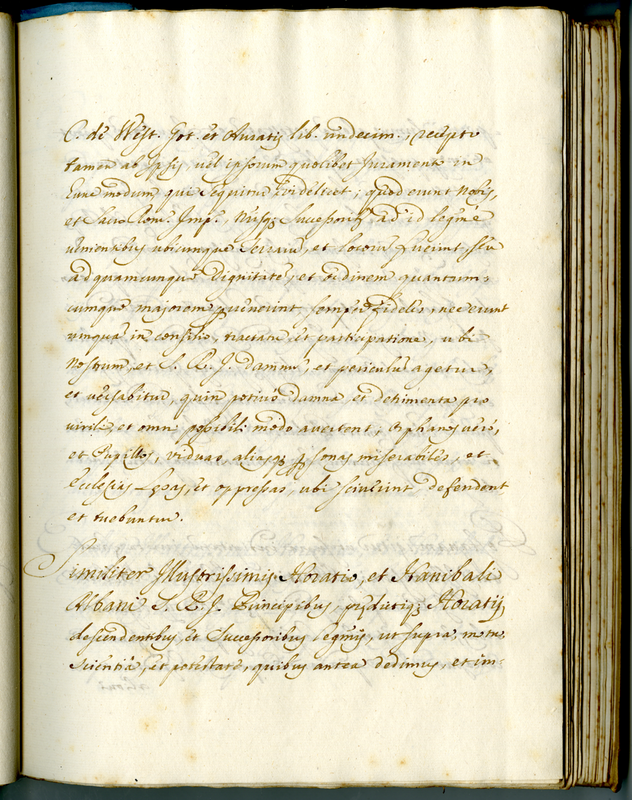 C. de West. Got. et Auratis lib. undecim., recepto
tamen ab ipsis, vel ipsorum quolibet Juramento in
hunc modum qui sequitur fidelitat; quod erunt nobis,
et Sacro Rom. Imp. Nrisq; Successorib; ad id legme
venientibus ubicumque Terrarũ, et locorũ fuerint, seu
ad quamcumque Dignitatẽ, et ordinem quantum-
cumque majorem pervenerint semper fideles, nec erunt
unquã in consilio, tractatu et participatione, ubi
nostrum, et S. R. I. damnũ, et periculũ agetur,
et versabitur, quin potius damna et detrimenta pro
virili, et omni possibili modo avertent, Orphanos verò,
et Pupillos, viduas, aliasq; psonas miserabiles, et
Ecclesias Lęsas, et oppressas, ubi sciverint defendent
et tuebuntur.
Similiter Illustrissimis Horatio, et Hanibali
Albani S. R. I. Principibus, prędictiq; Horatij
descendentibus, et Successoribus legmis, ut supra, motu
scientia, et potestate, quibus antea dedimus, et im-